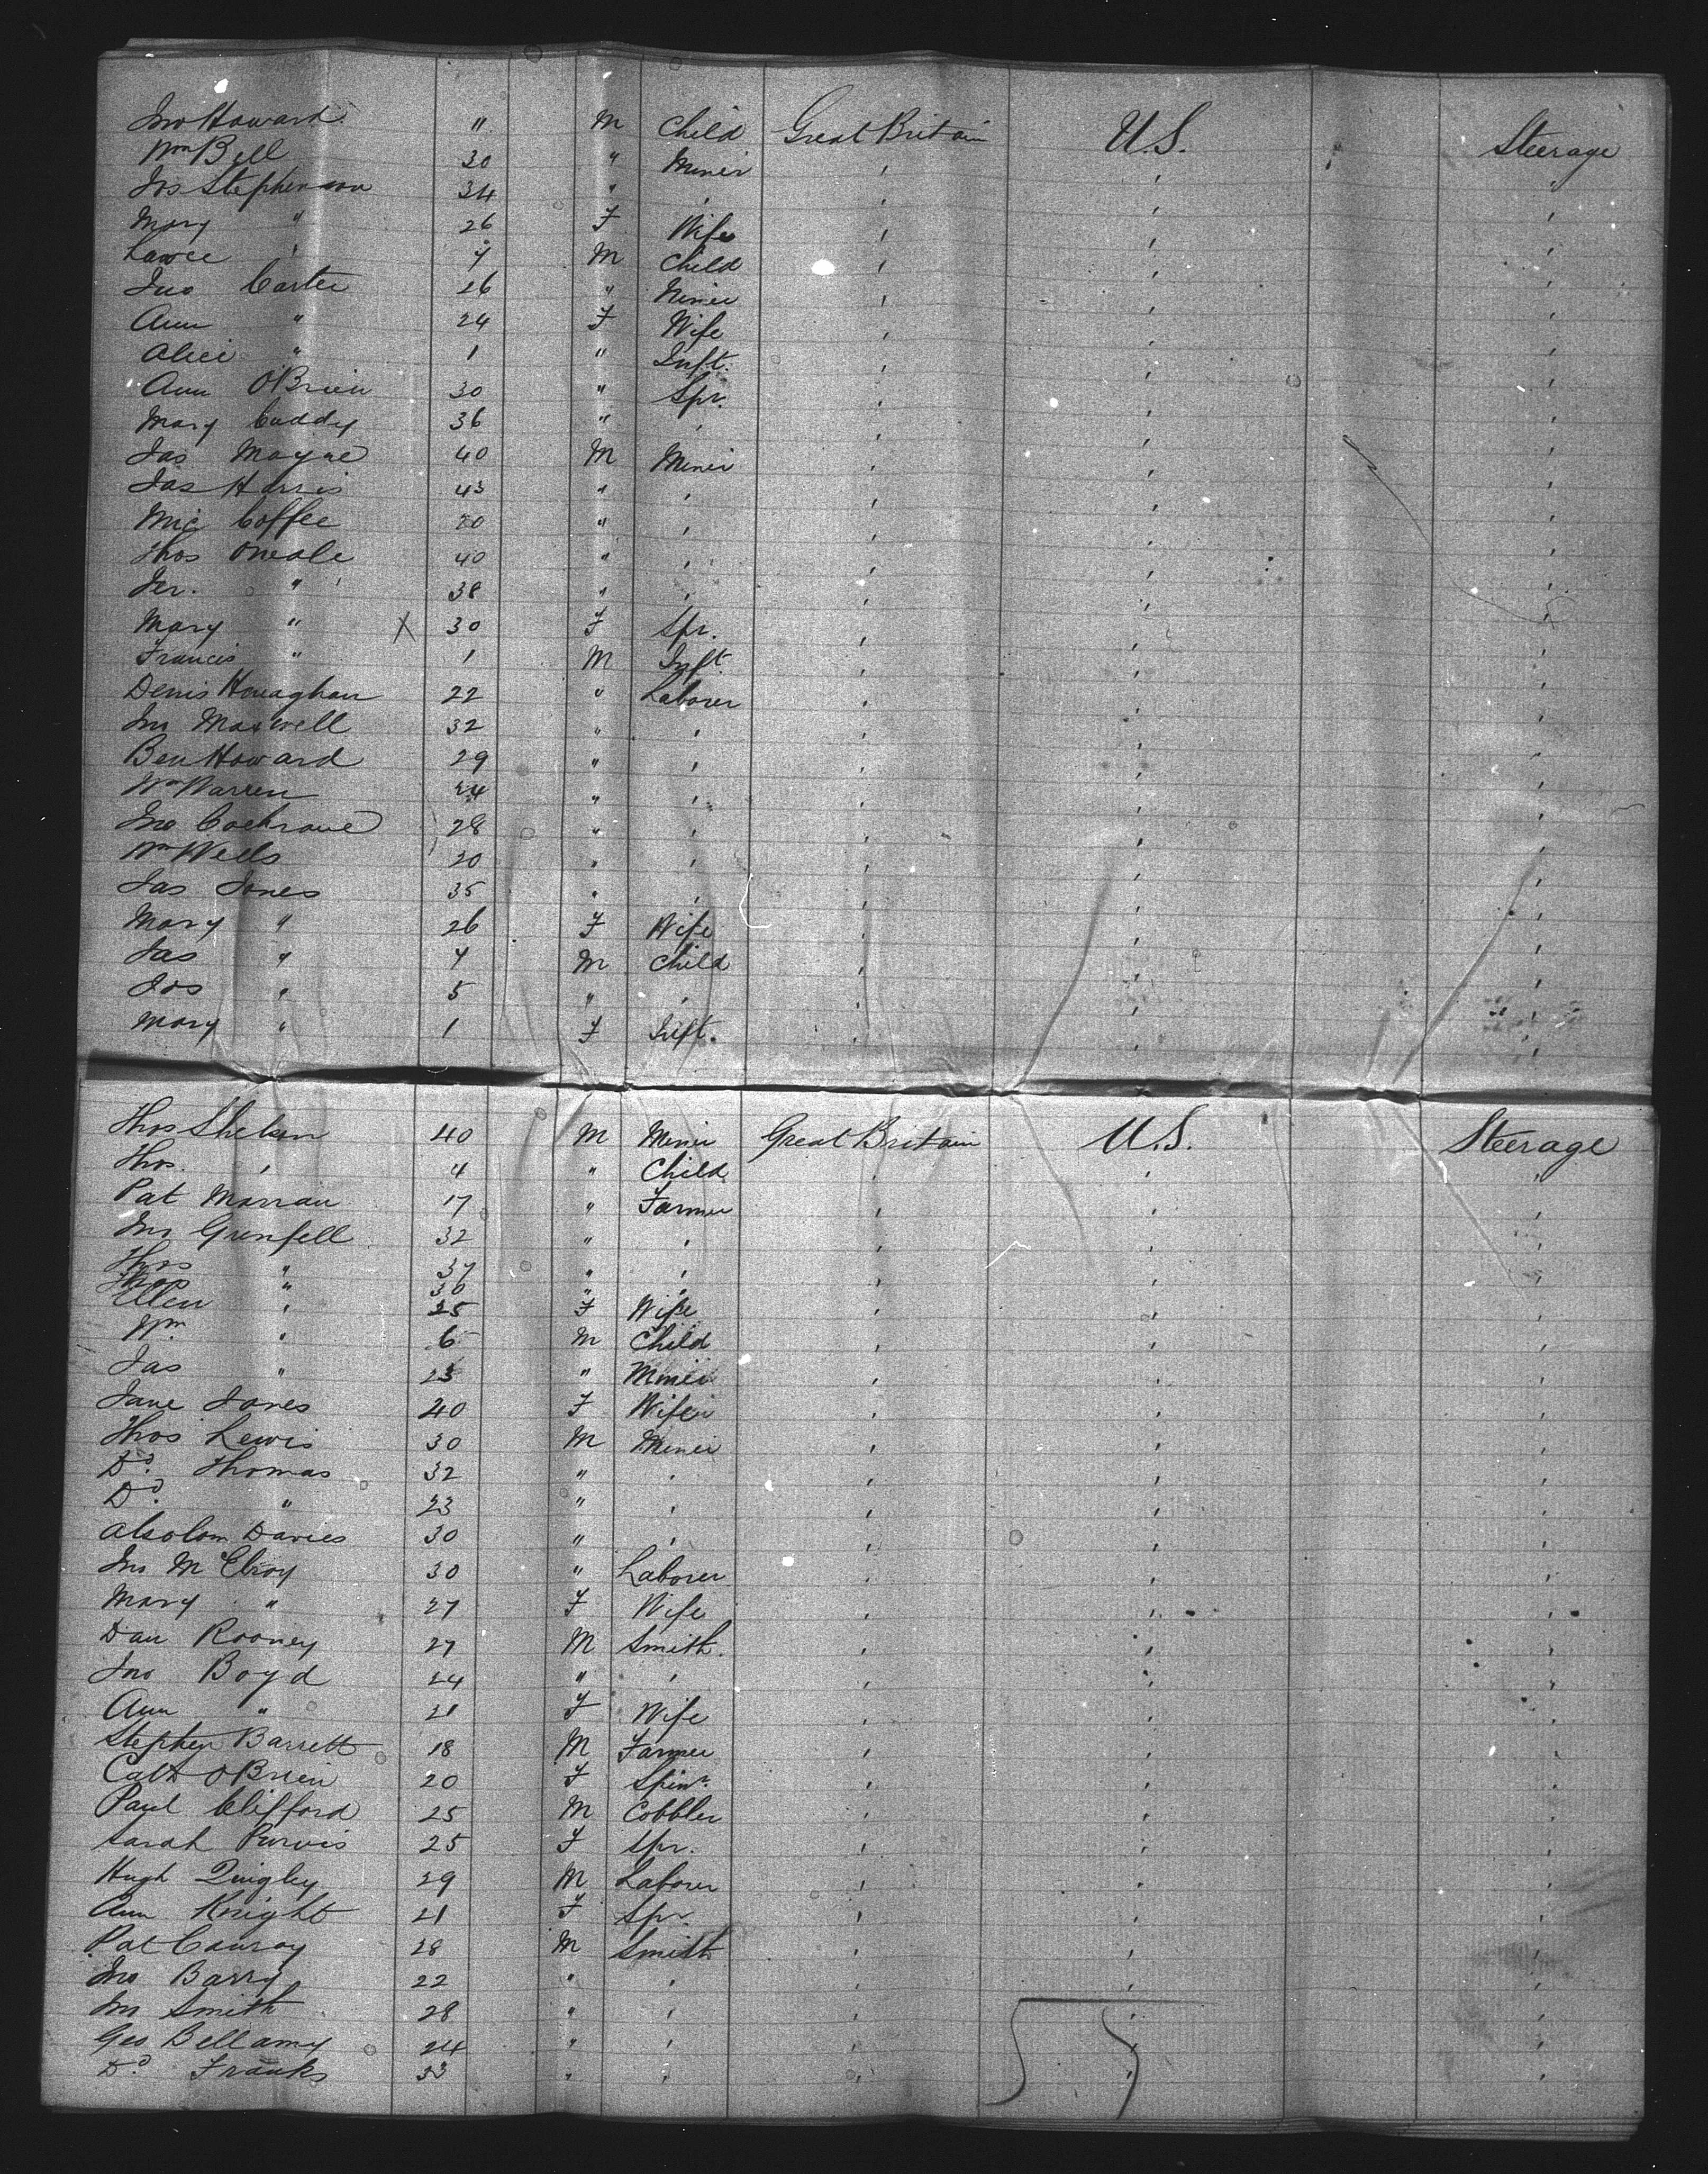 Jno Howard 11 M Child Great Britain U.S. Steerage
Wm Bell 30 " Miner " " "
Jos Stephenson 34 " " " " "
Mary " 26 F Wife " " "
Lawce " 4 M Child " " "
Jno Carter 26 " Miner " " "
Ann " 24 F Wife " " "
Alice " 1 " Inft. " " "
Ann O'Brien 30 " Spr. " " "
Mary Cuddy 36 " " " " "
Jas Mayne 40 M Miner " " "
Jas Harris 43 " " " " "
Mic Coffee " " " " "
Thos Oneale 40 " " " " "
Jer. " 38 " " " " "
Mary " X 30 F Spr. " " "
Francis " 1 M Inft " " "
Denis Henaghan 22 " Laborer " " "
Jno Maxwell 32 " " " " "
Ben Howard 29 " " " " "
Wm Warren 24 " " " " "
Jno Cochrane 28 " " " " "
Wm Wells 20 " " " " "
Jas Jones 35 " " " " "
Mary " 26 F Wife " " "
Jas " M Child " " "
Jos " 5 " " " " "
Mary " 1 F Inft. " " "
Thos 40 M Miner Great Britain U.S. Steerage
Thos. " 4 " Child " " "
Pat Marrau 17 " Farmer " " "
Jno Grenfell 32 " " " " "
Thos " 37 " " " " "
Thos " 30 " "
Ellen " 25 F Wife " " "
Wm " 6 M Child " " "
Jas " 23 " Miner " " "
Jane Jones 40 F Wife " " "
Thos Lewis 30 M Miner " " "
Dd. Thomas 32 " " " " "
Dd. " 23 " " " " "
Absolom Davies 30 " " " " "
Jno McElroy 30 " Laborer " " "
Mary " 27 F Wife " " "
Dan Rooney 27 M Smith. " " "
Jno Boyd 24 " " " " "
Ann " 21 F Wife " " "
Stephen Barrett 18 M Farmer " " "
Cath OBrien 20 F Spinr. " " "
Paul Clifford 25 M Cobbler " " "
Sarah Purvis 25 F Spr. " " "
Hugh Quigley 29 M Laborer " " "
Ann Knight 21 F Spr. " " "
Pat Conroy 28 M Smith " " "
Jno Barry 22 " " " " "
Jno Smith 28 " " " " "
Geo Bellamy 24 " " " " "
Dd. Franks 33 " " " " "